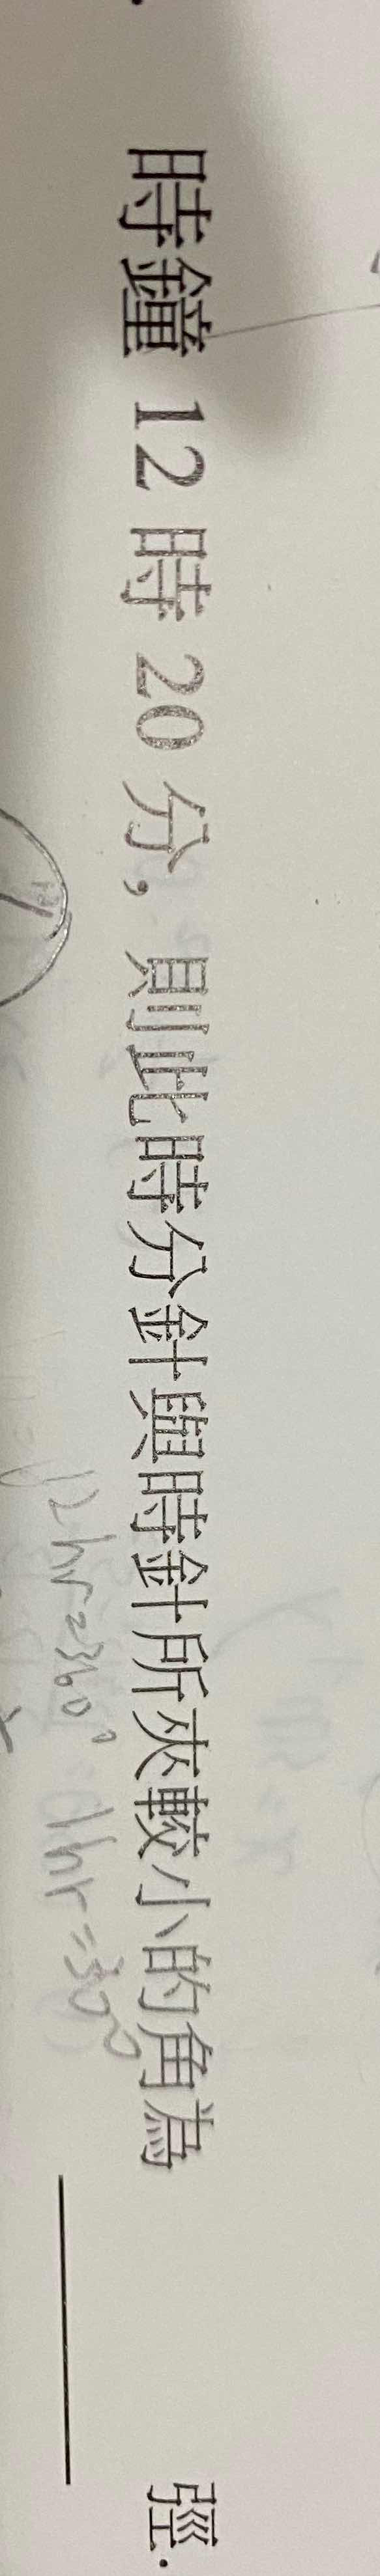 時鐘 12 時 20 分，則此時分針與時針所夾較小的角為 弳.
12hr=360° 1hr=30°